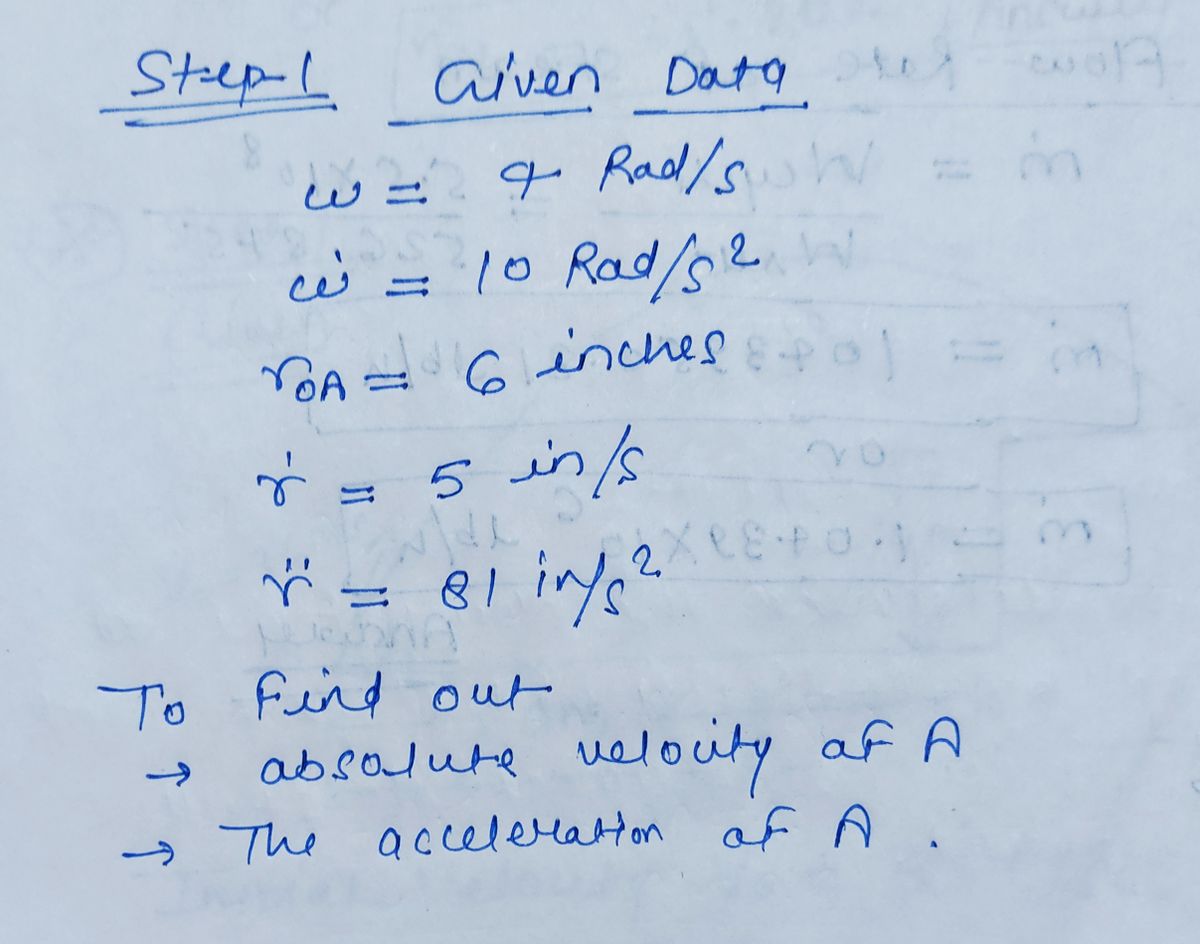 Step-1 Given Data
ω = 4 Rad/s
ω̇ = 10 Rad/s²
rOA = 6 inches
ṙ = 5 in/s
r̈ = 81 in/s²
To Find out
→ absolute velocity of A
→ The acceleration of A .